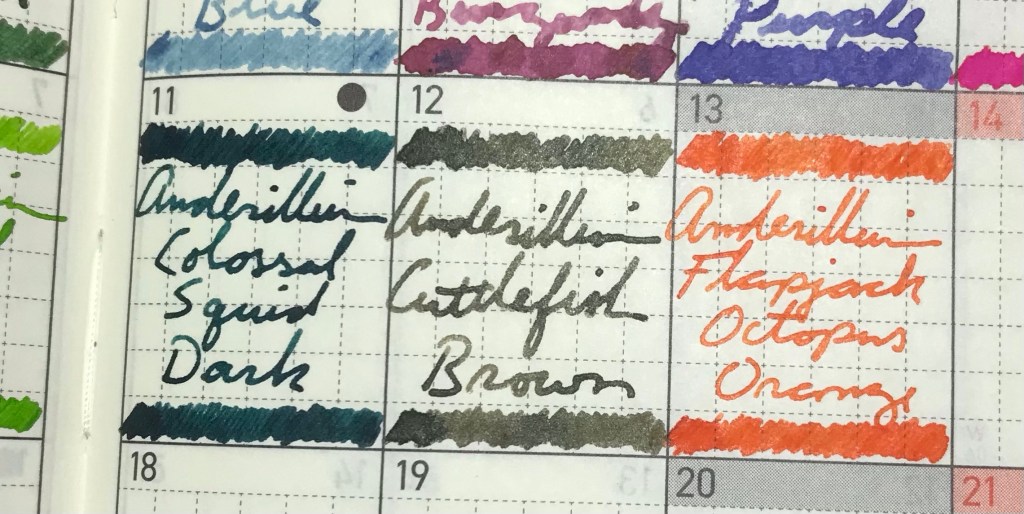 Blue
Burgundy
Purple
7
11
12
6
13
14
Anderillium
Colossal
Squid
Dark
Anderillium
Cuttlefish
Brown
Anderillium
Flapjack
Octopus
Orange
18
14
19
13
20
21